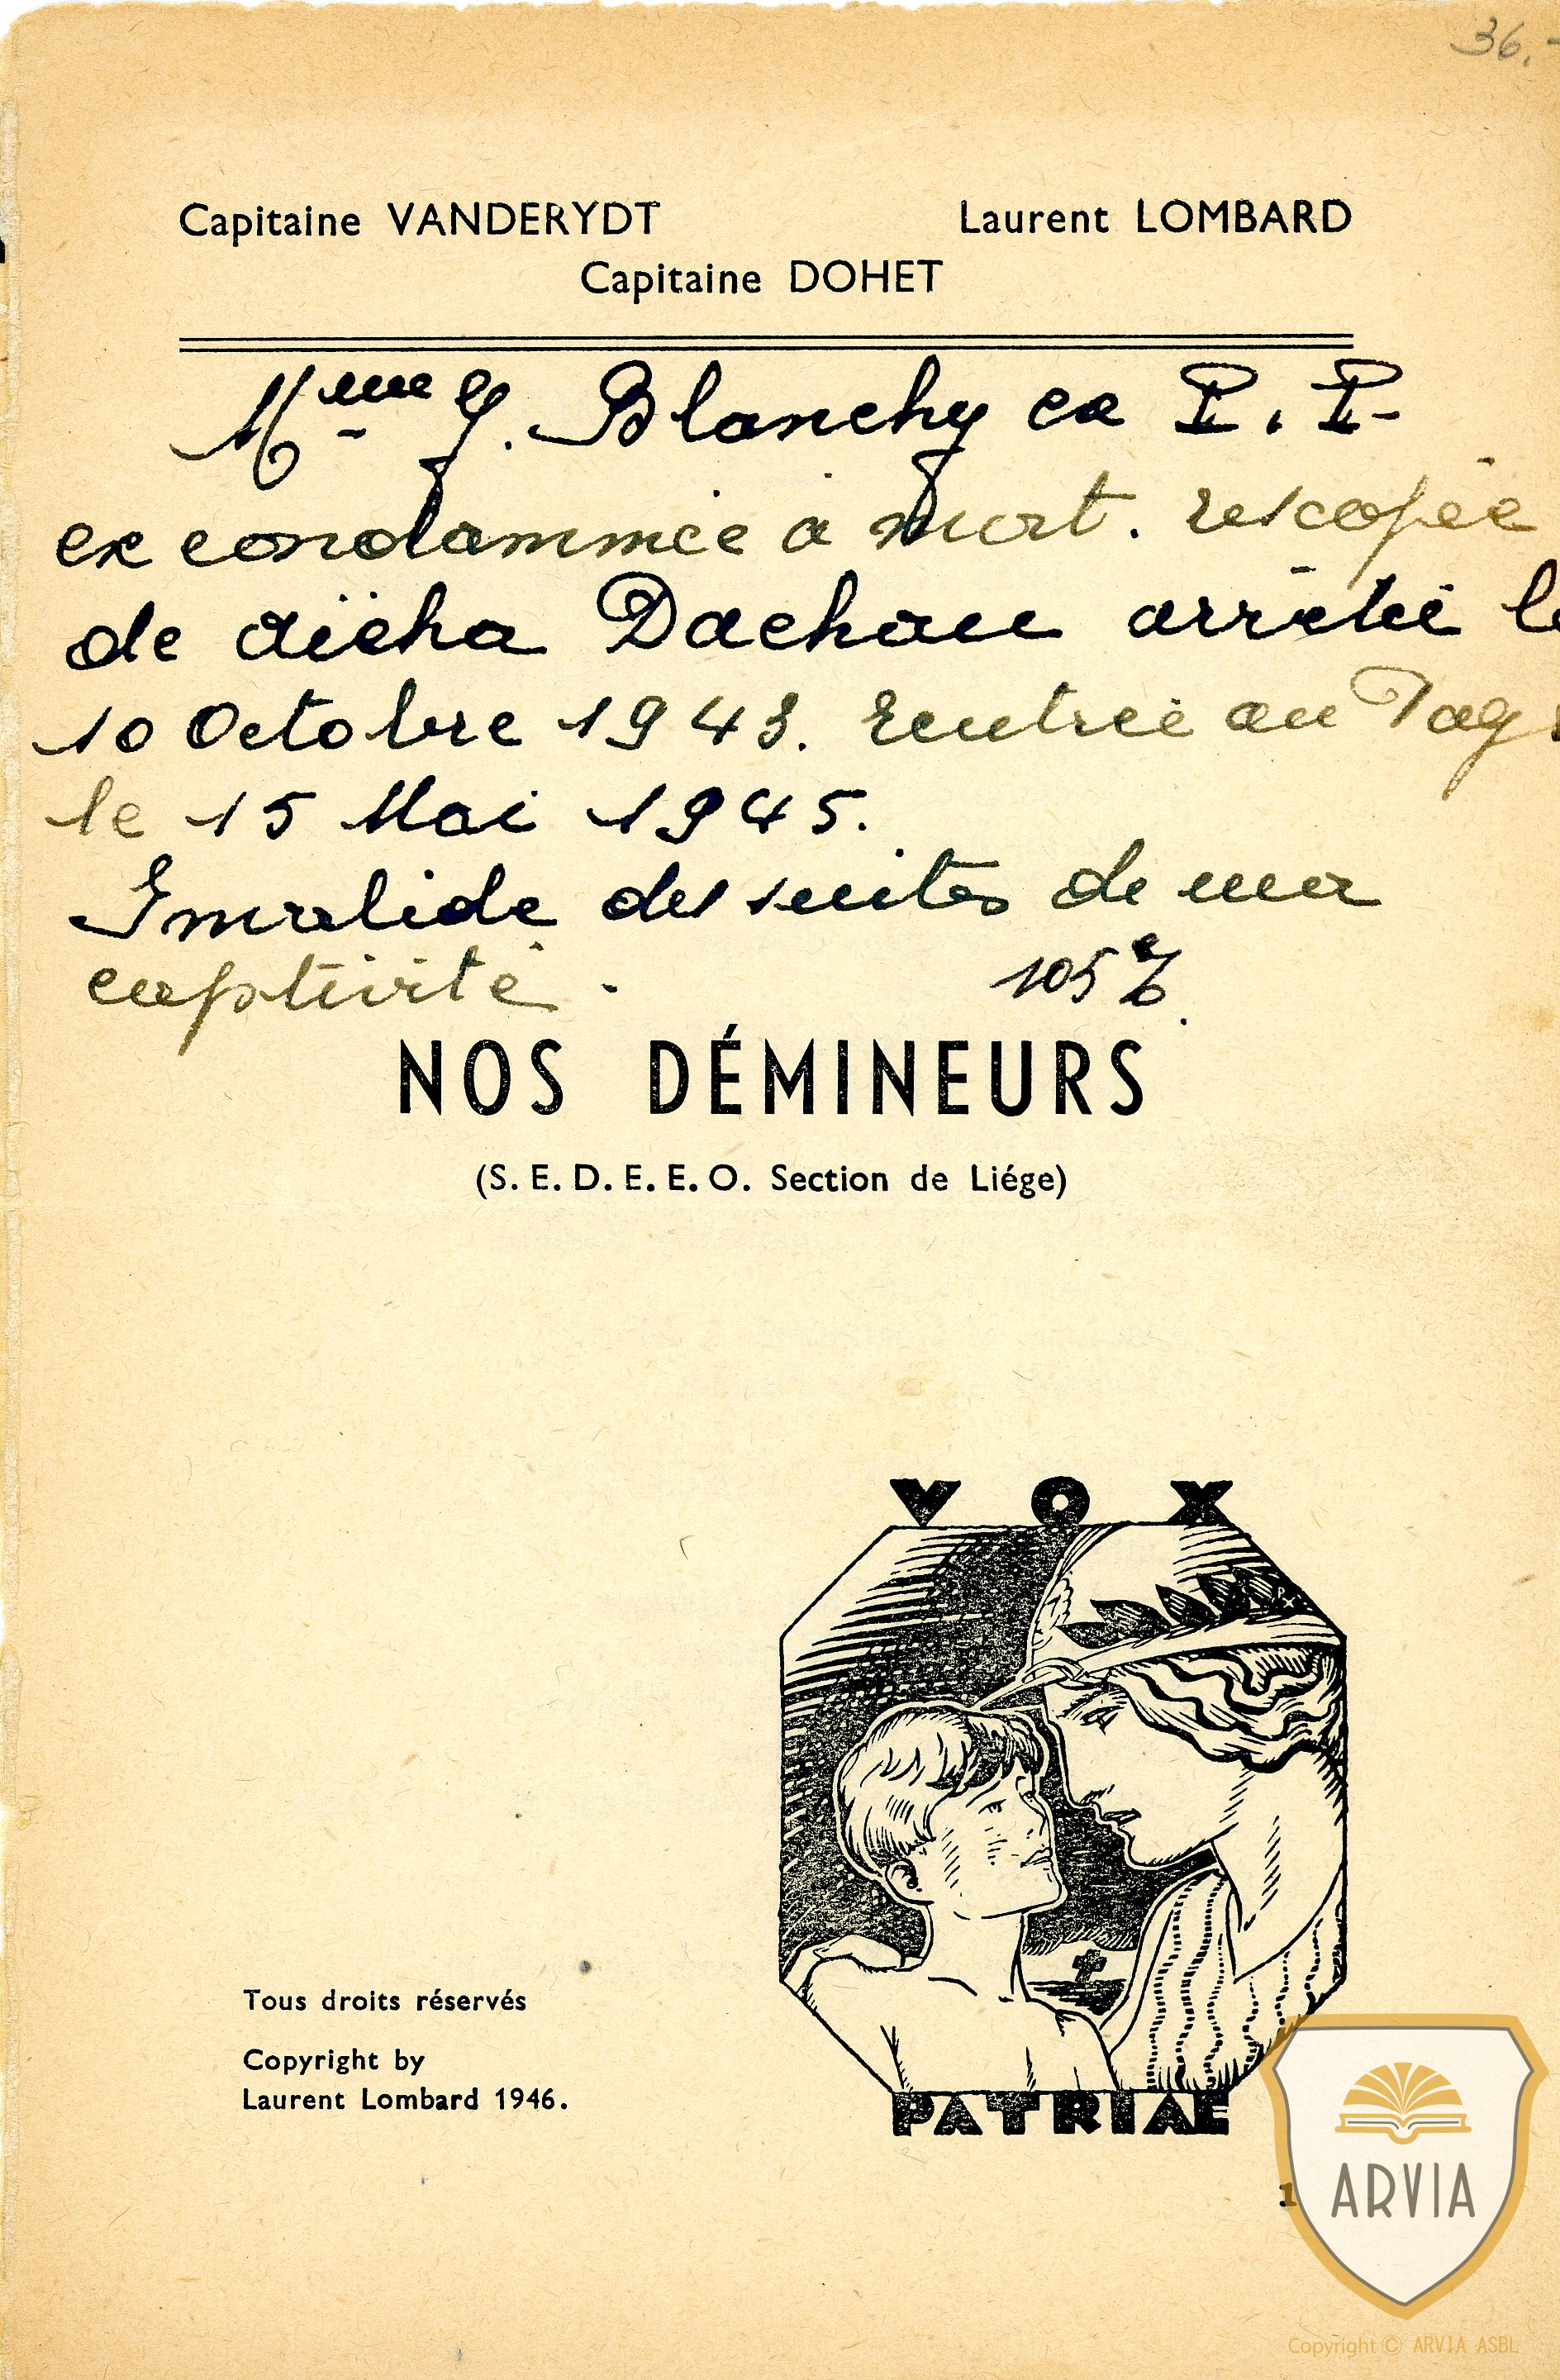 36.-
Capitaine VANDERYDT Laurent LOMBARD
Capitaine DOHET
Mme G. Blanchy ex P. P.
ex condammnée à mort. rescapée
de aïcha Dachau arrêtée le
10 Octobre 1943. Rentrée au Pays
le 15 Mai 1945.
Invalide des suites de ma
captivité. 105%.
NOS DÉMINEURS
(S. E. D. E. E. O. Section de Liége)
VOX
PATRIAE
Tous droits réservés
Copyright by
Laurent Lombard 1946.
1
ARVIA
Copyright © ARVIA ASBL